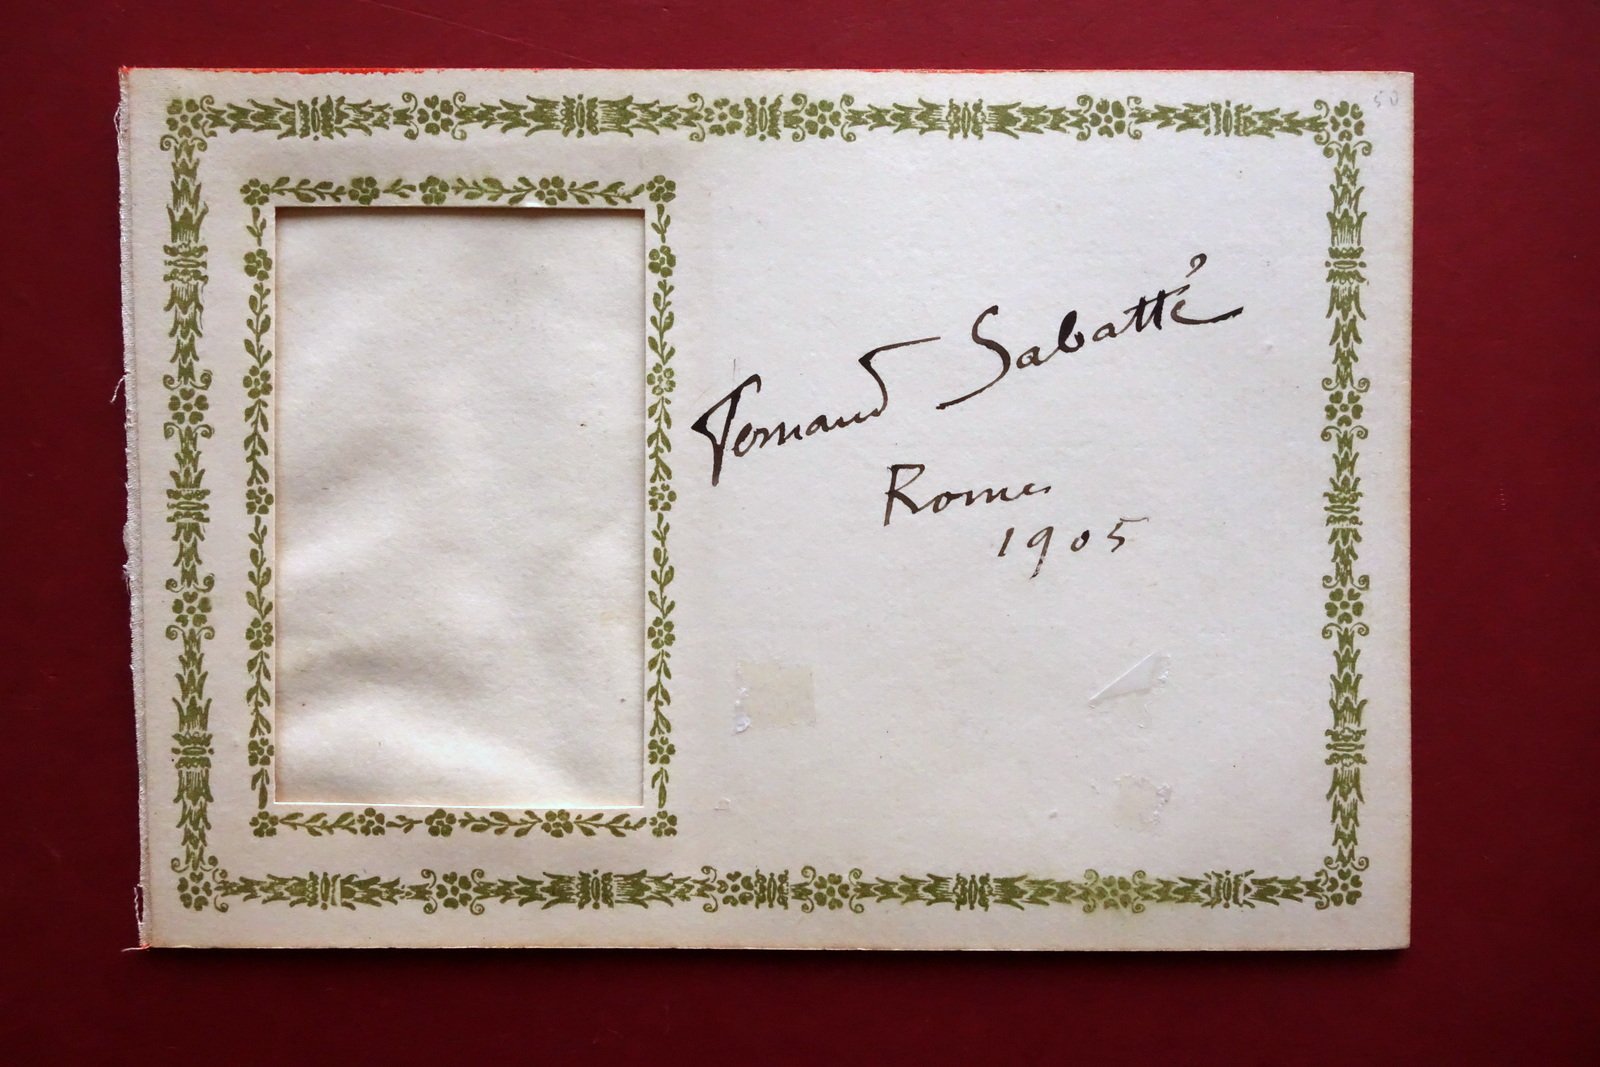 50
Fernand Sabatté
Rome
1905